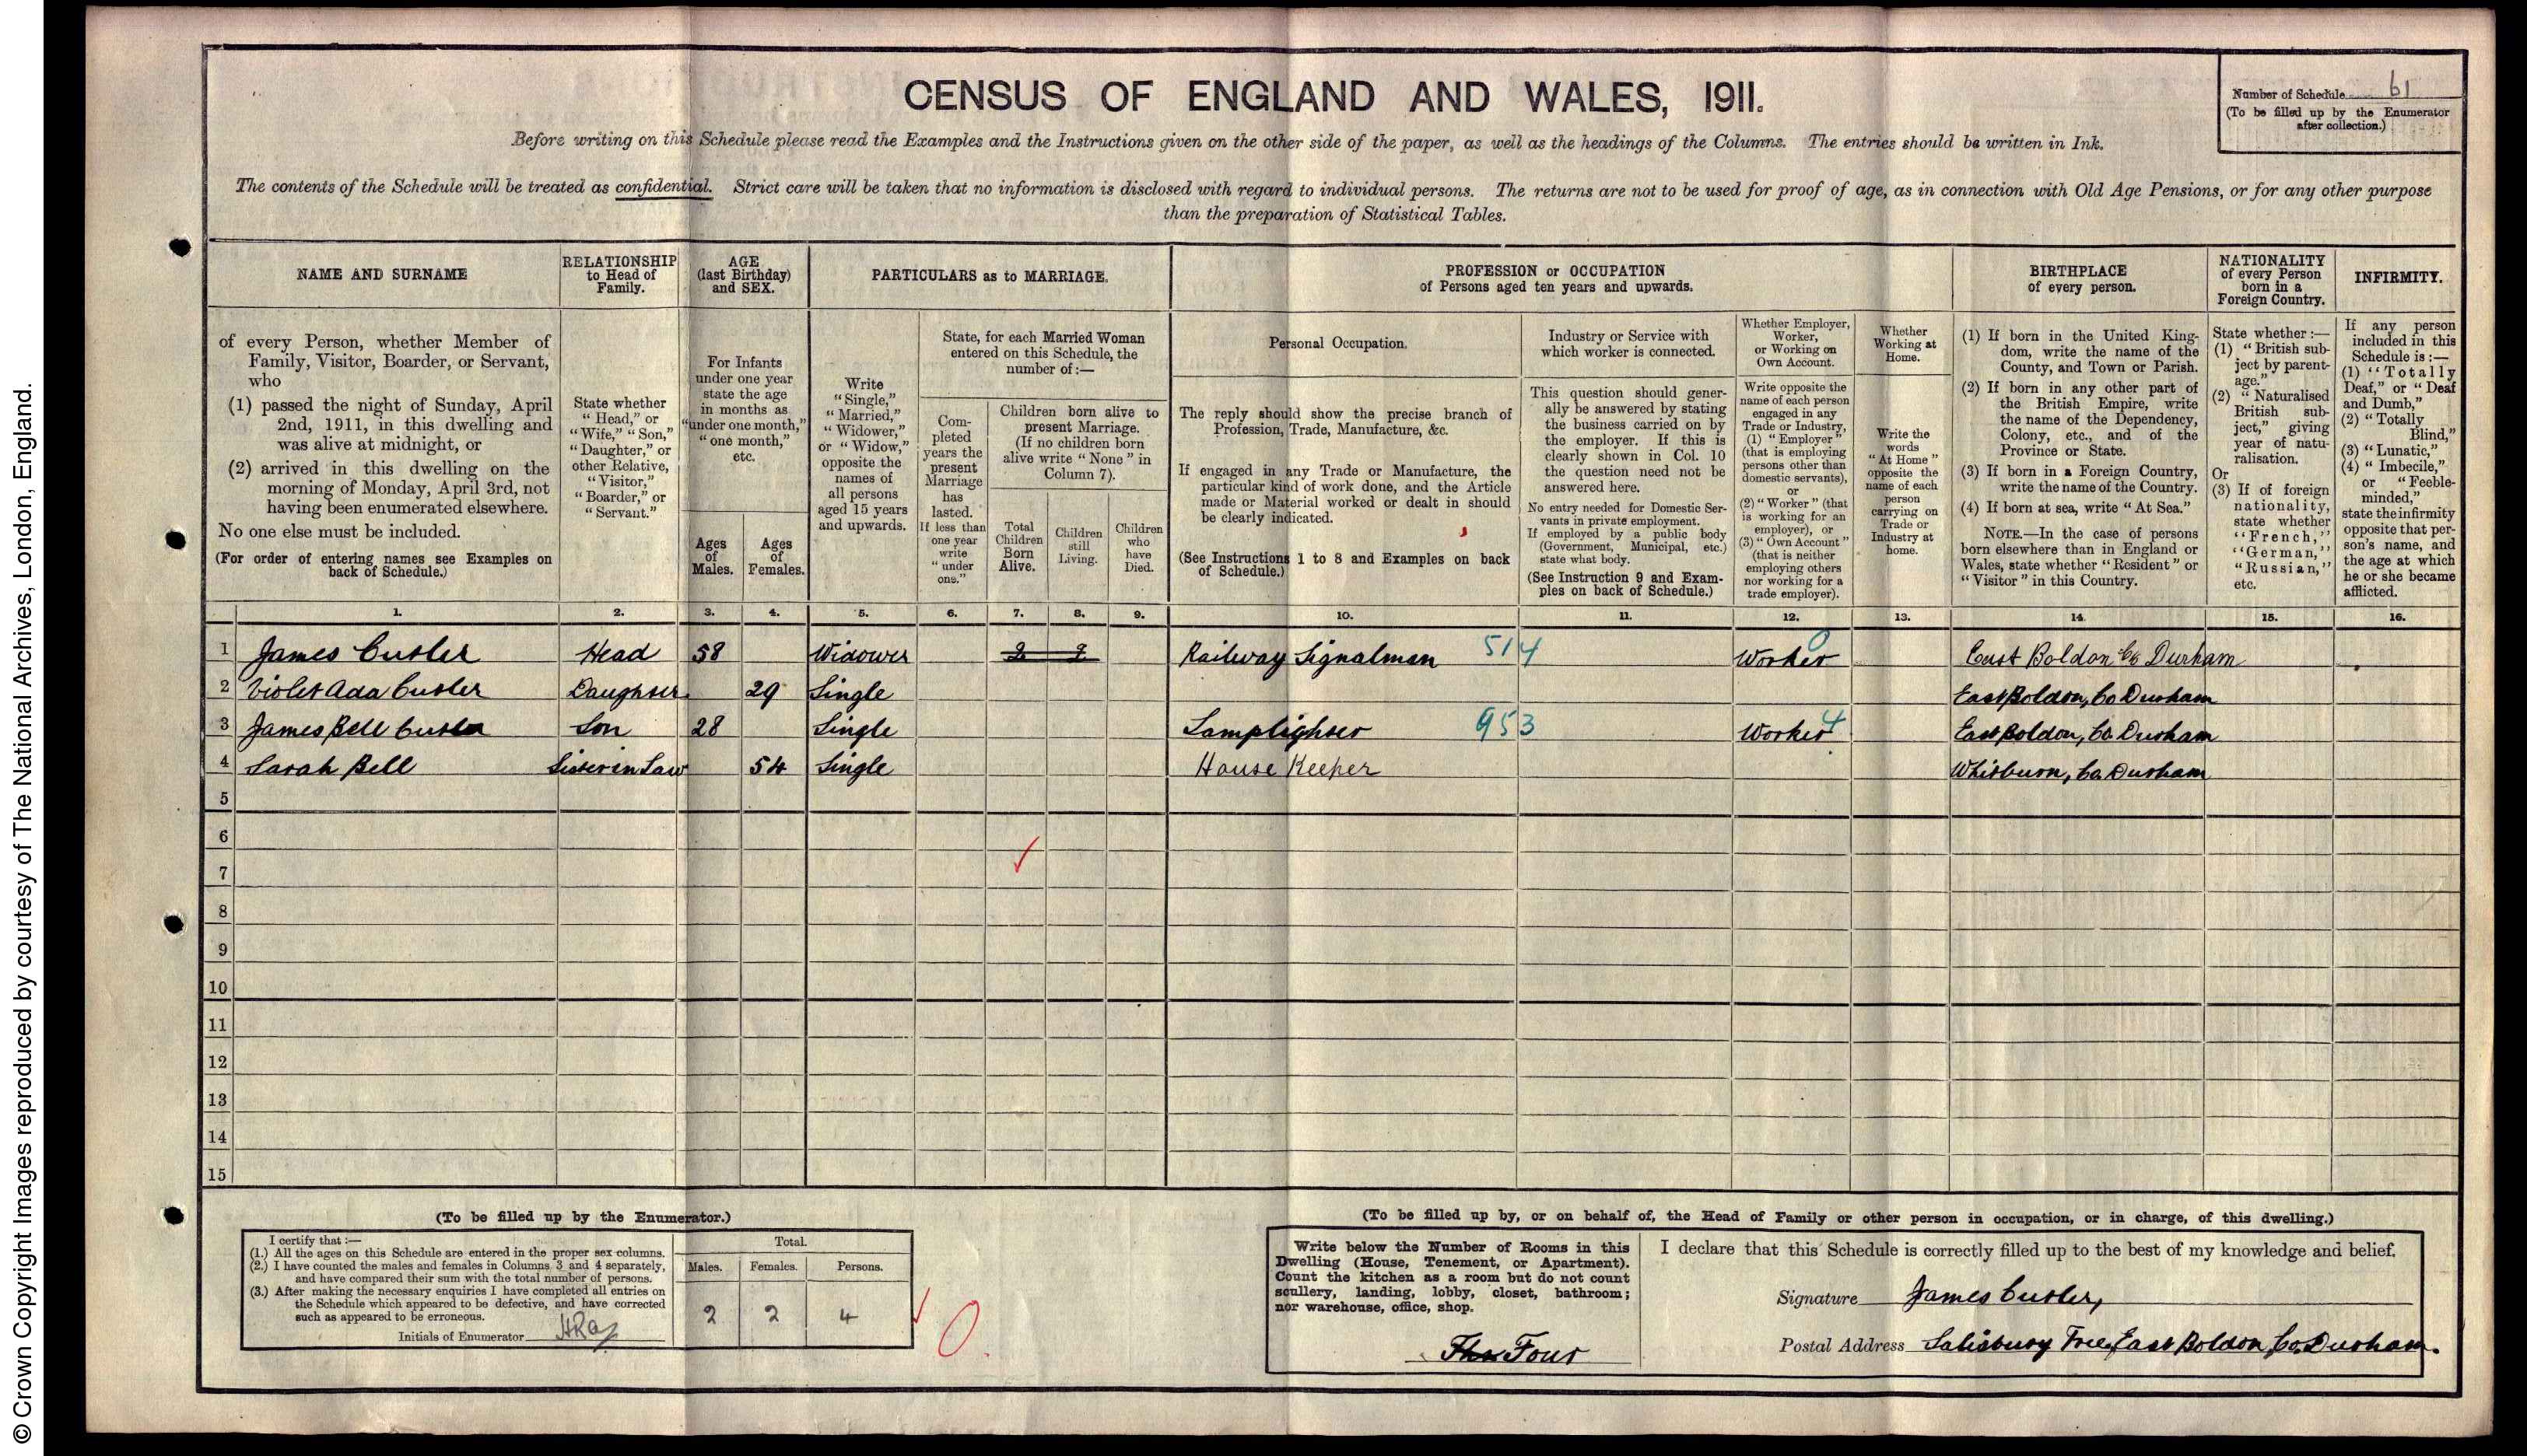 © Crown Copyright Images reproduced by courtesy of The National Archives, London, England.
CENSUS OF ENGLAND AND WALES, 1911.
Number of Schedule 61
(To be filled up by the Enumerator
after collection.)
Before writing on this Schedule please read the Examples and the Instructions given on the other side of the paper, as well as the headings of the Columns. The entries should be written in Ink.
The contents of the Schedule will be treated as confidential. Strict care will be taken that no information is disclosed with regard to individual persons. The returns are not to be used for proof of age, as in connection with Old Age Pensions, or for any other purpose
than the preparation of Statistical Tables.
NAME AND SURNAME
of every Person, whether Member of
Family, Visitor, Boarder, or Servant,
who
(1) passed the night of Sunday, April
2nd, 1911, in this dwelling and
was alive at midnight, or
(2) arrived in this dwelling on the
morning of Monday, April 3rd, not
having been enumerated elsewhere.
No one else must be included.
(For order of entering names see Examples on
back of Schedule.)
RELATIONSHIP
to Head of
Family.
State whether
"Head," or
"Wife," "Son,"
"Daughter," or
other Relative,
"Visitor,"
"Boarder," or
"Servant."
AGE
(last Birthday)
and SEX.
For Infants
under one year
state the age
in months as
"under one month,"
"one month,"
etc.
Ages
of
Males.
Ages
of
Females.
PARTICULARS as to MARRIAGE.
Write
"Single,"
"Married,"
"Widower,"
or "Widow,"
opposite the
names of
all persons
aged 15 years
and upwards.
State, for each Married Woman
entered on this Schedule, the
number of:—
Com-
pleted
years the
present
Marriage
has
lasted.
If less than
one year
write
"under
one."
Children born alive to
present Marriage.
(If no children born
alive write "None" in
Column 7).
Total
Children
Born
Alive.
Children
still
Living.
Children
who
have
Died.
PROFESSION or OCCUPATION
of Persons aged ten years and upwards.
Personal Occupation.
The reply should show the precise branch of
Profession, Trade, Manufacture, &c.
If engaged in any Trade or Manufacture, the
particular kind of work done, and the Article
made or Material worked or dealt in should
be clearly indicated.
(See Instructions 1 to 8 and Examples on back
of Schedule.)
Industry or Service with
which worker is connected.
This question should gener-
ally be answered by stating
the business carried on by
the employer. If this is
clearly shown in Col. 10
the question need not be
answered here.
No entry needed for Domestic Ser-
vants in private employment.
If employed by a public body
(Government, Municipal, etc.)
state what body.
(See Instruction 9 and Exam-
ples on back of Schedule.)
Whether Employer,
Worker,
or Working on
Own Account.
Write opposite the
name of each person
engaged in any
Trade or Industry,
(1) "Employer"
(that is employing
persons other than
domestic servants),
or
(2) "Worker" (that
is working for an
employer), or
(3) "Own Account"
(that is neither
employing others
nor working for a
trade employer).
Whether
Working at
Home.
Write the
words
"At Home"
opposite the
name of each
person
carrying on
Trade or
Industry at
home.
BIRTHPLACE
of every person.
(1) If born in the United King-
dom, write the name of the
County, and Town or Parish.
(2) If born in any other part of
the British Empire, write
the name of the Dependency,
Colony, etc., and of the
Province or State.
(3) If born in a Foreign Country,
write the name of the Country.
(4) If born at sea, write "At Sea."
NOTE.—In the case of persons
born elsewhere than in England or
Wales, state whether "Resident" or
"Visitor" in this Country.
NATIONALITY
of every Person
born in a
Foreign Country.
State whether:—
(1) "British sub-
ject by parent-
age."
(2) "Naturalised
British sub-
ject," giving
year of natu-
ralisation.
Or
(3) If of foreign
nationality,
state whether
"French,"
"German,"
"Russian,"
etc.
INFIRMITY.
If any person
included in this
Schedule is:—
(1) "Totally
Deaf," or "Deaf
and Dumb,"
(2) "Totally
Blind,"
(3) "Lunatic,"
(4) "Imbecile,"
or "Feeble-
minded,"
state the infirmity
opposite that per-
son's name, and
the age at which
he or she became
afflicted.
1. 2. 3. 4. 5. 6. 7. 8. 9. 10. 11. 12. 13. 14. 15. 16.
1 James Cutler Head 58 Widower 2 2 Railway Signalman 514 Worker 0 East Boldon Co Durham
2 Violet Ada Cutler Daughter 29 Single East Boldon, Co Durham
3 James Bell Cutler Son 28 Single Lamplighter 953 Worker 4 East Boldon, Co Durham
4 Sarah Bell Sister in Law 54 Single House Keeper Whitburn, Co Durham
5
6
7
8
9
10
11
12
13
14
15
(To be filled up by the Enumerator.)
I certify that:—
(1.) All the ages on this Schedule are entered in the proper sex columns.
(2.) I have counted the males and females in Columns 3 and 4 separately,
and have compared their sum with the total number of persons.
(3.) After making the necessary enquiries I have completed all entries on
the Schedule which appeared to be defective, and have corrected
such as appeared to be erroneous.
Initials of Enumerator
Total.
Males. Females. Persons.
2 2 4
(To be filled up by, or on behalf of, the Head of Family or other person in occupation, or in charge, of this dwelling.)
Write below the Number of Rooms in this
Dwelling (House, Tenement, or Apartment).
Count the kitchen as a room but do not count
scullery, landing, lobby, closet, bathroom;
nor warehouse, office, shop.
Four
I declare that this Schedule is correctly filled up to the best of my knowledge and belief.
Signature James Cutler,
Postal Address Salisbury East Boldon, Co. Durham.